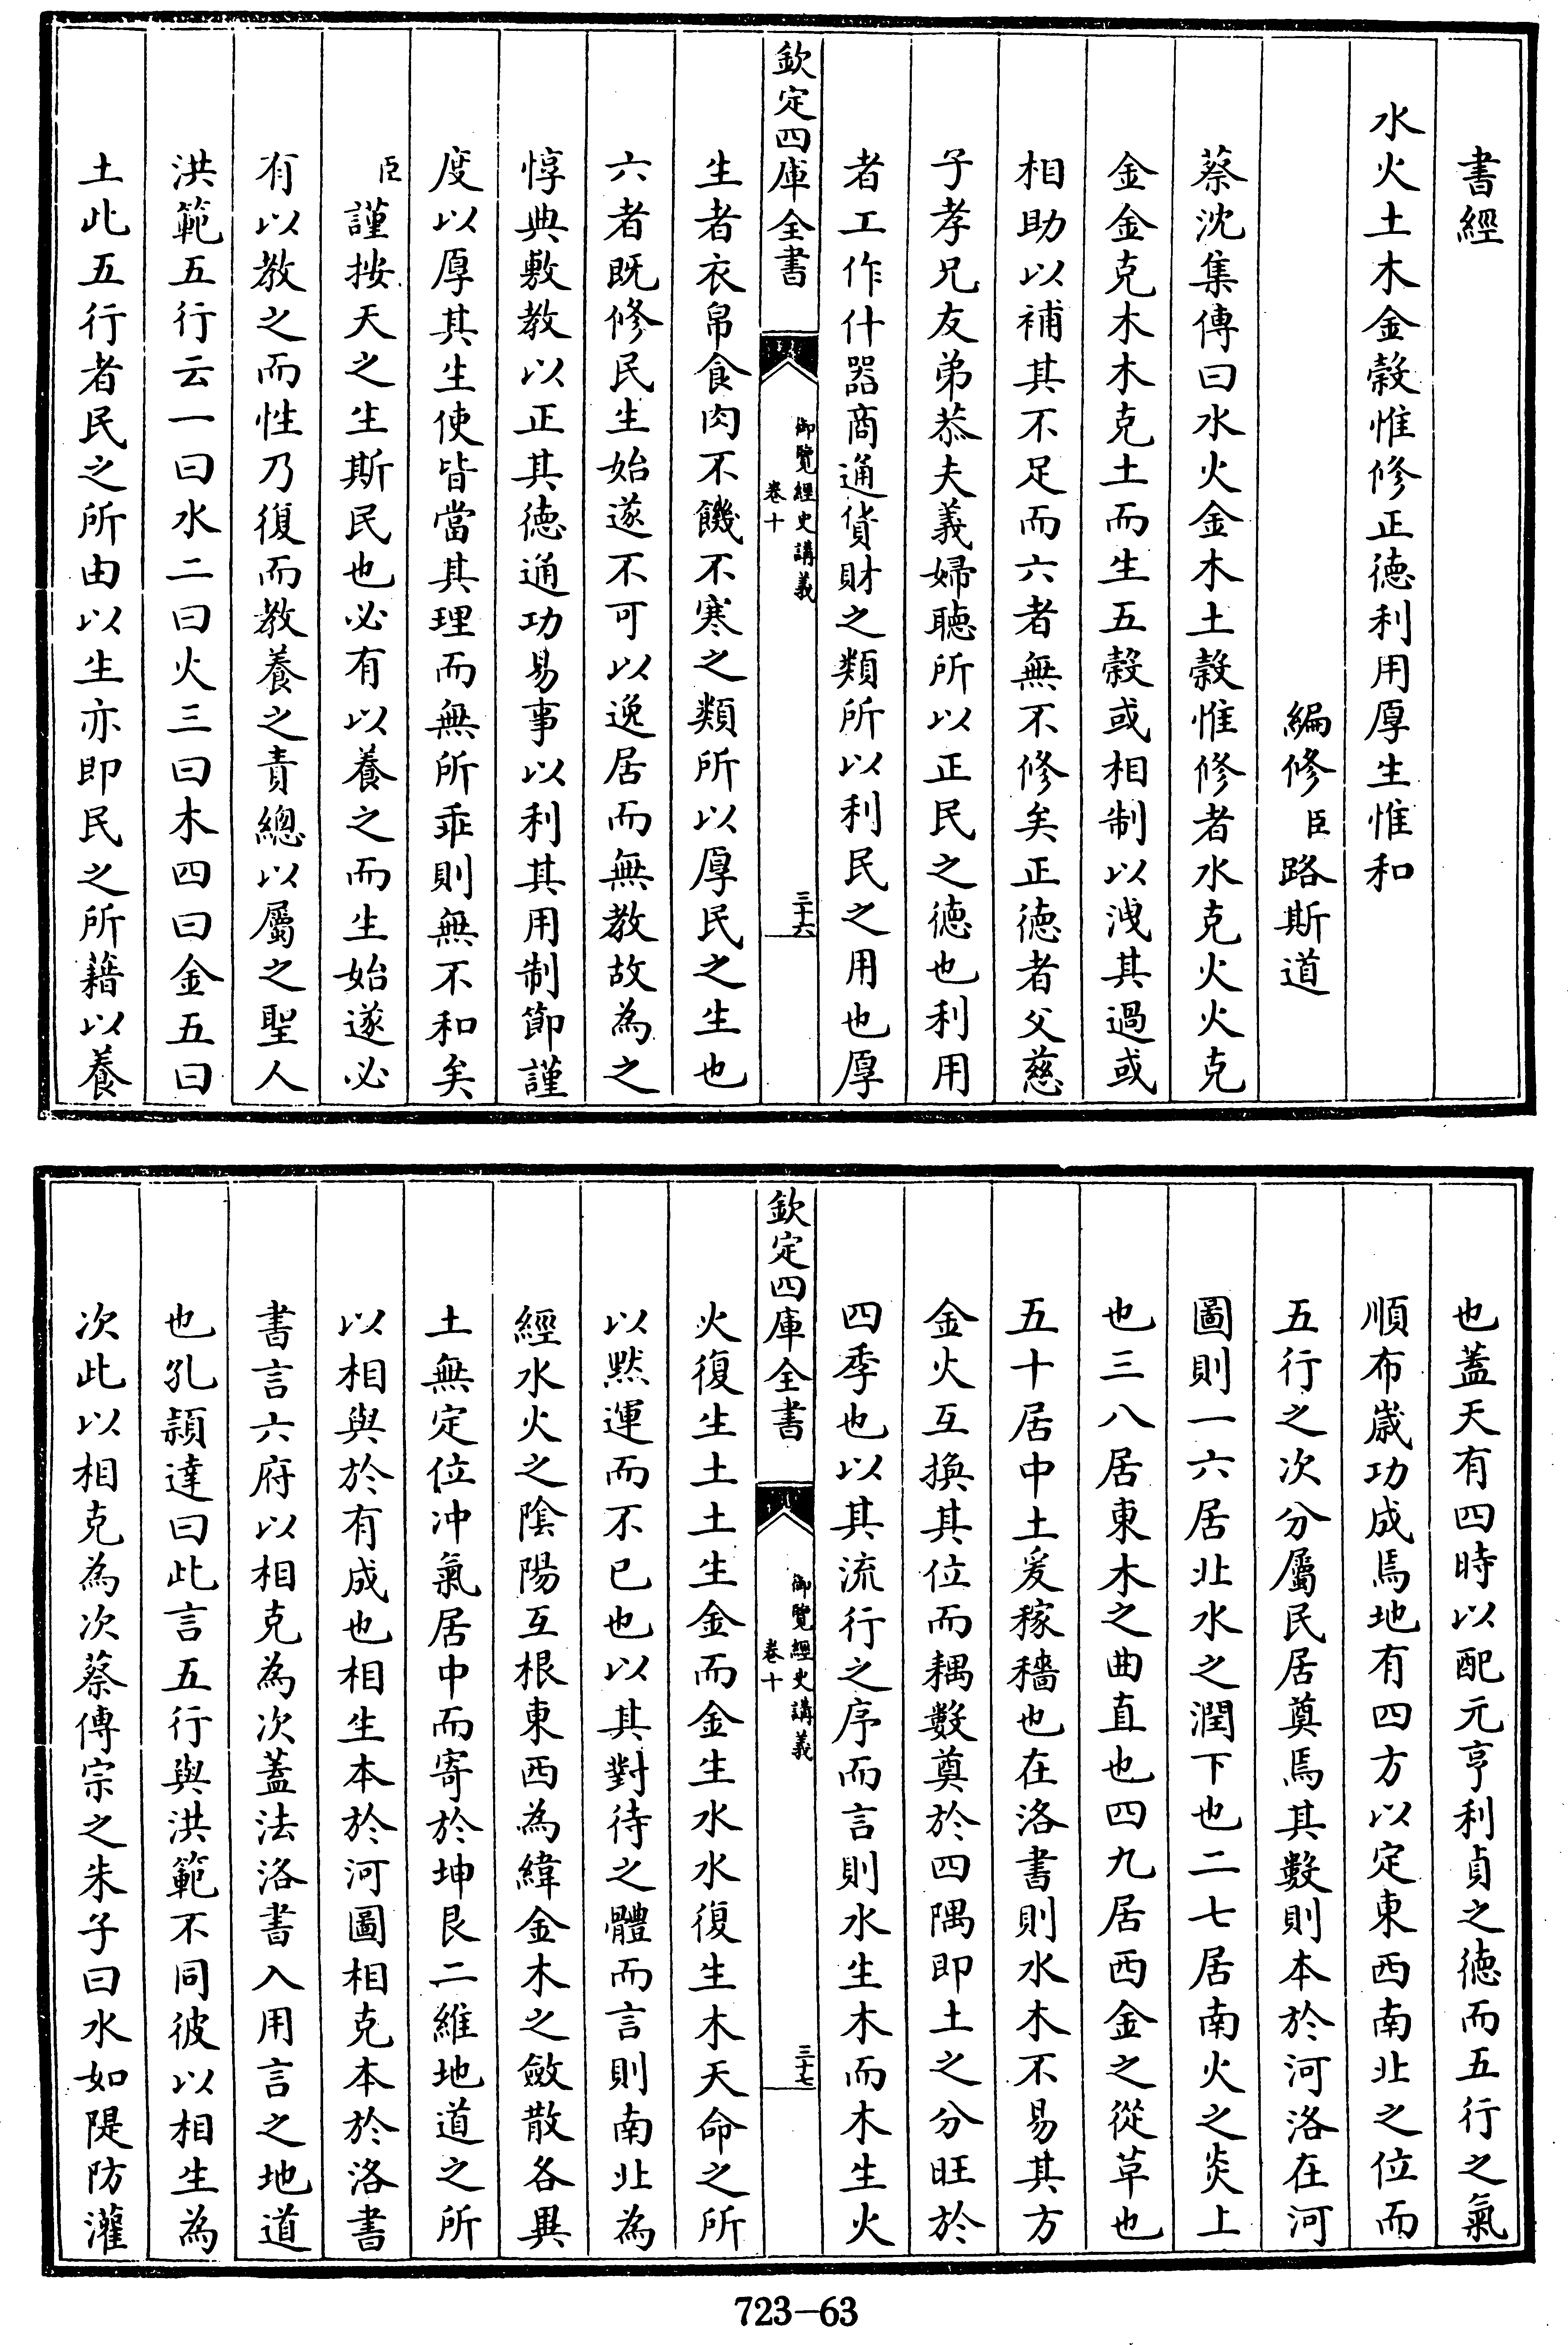 書經
水火土木金穀惟修正德利用厚生惟和
編修臣路斯道
蔡沈集傳曰水火金木土穀惟修者水克火火克
金金克木木克土而生五穀或相制以洩其過或
相助以補其不足而六者無不修矣正德者父慈
子孝兄友弟恭夫義婦聽所以正民之德也利用
者工作什器商通貨財之類所以利民之用也厚
欽定四庫全書
御覽經史講義
卷十
三十六
生者衣帛食肉不饑不寒之類所以厚民之生也
六者既修民生始遂不可以逸居而無教故為之
惇典敷教以正其德通功易事以利其用制節謹
度以厚其生使皆當其理而無所乖則無不和矣
臣謹按天之生斯民也必有以養之而生始遂必
有以教之而性乃復而教養之責總以屬之聖人
洪範五行云一曰水二曰火三曰木四曰金五曰
土此五行者民之所由以生亦即民之所藉以養
也蓋天有四時以配元亨利貞之德而五行之氣
順布歲功成焉地有四方以定東西南北之位而
五行之次分屬民居奠焉其數則本於河洛在河
圖則一六居北水之潤下也二七居南火之炎上
也三八居東木之曲直也四九居西金之從革也
五十居中土爰稼穡也在洛書則水木不易其方
金火互換其位而耦數奠於四隅即土之分旺於
四季也以其流行之序而言則水生木而木生火
欽定四庫全書
御覽經史講義
卷十
三十七
火復生土土生金而金生水水復生木天命之所
以默運而不已也以其對待之體而言則南北為
經水火之陰陽互根東西為緯金木之斂散各異
土無定位冲氣居中而寄於坤艮二維地道之所
以相與於有成也相生本於河圖相克本於洛書
書言六府以相克為次蓋法洛書入用言之地道
也孔頴達曰此言五行與洪範不同彼以相生為
次此以相克為次蔡傳宗之朱子曰水如隄防灌
723-63